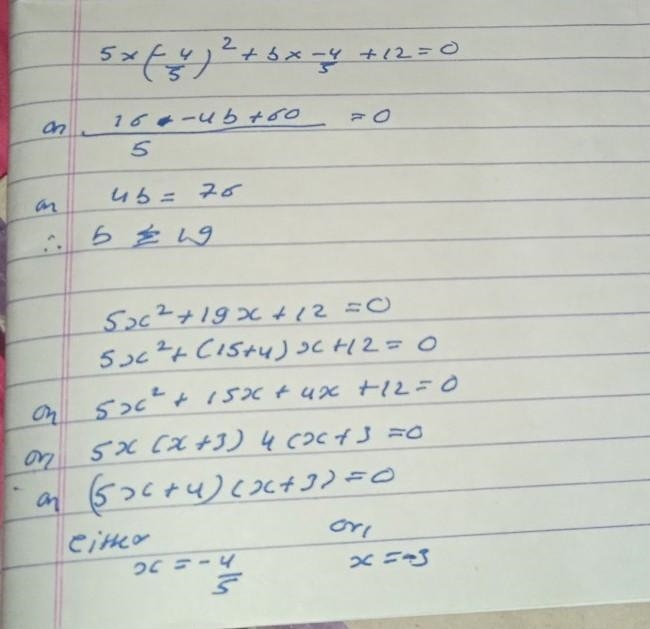 5×(-4/5)² + b×-4/5 + 12 = 0
or 16 -4b+60 / 5 = 0
or 4b = 76
∴ b = 19
5x² + 19x + 12 = 0
5x² + (15+4)x + 12 = 0
or 5x² + 15x + 4x + 12 = 0
or 5x (x+3) 4(x+3 = 0
or (5x+4)(x+3) = 0
either or,
x = -4/5 x = -3